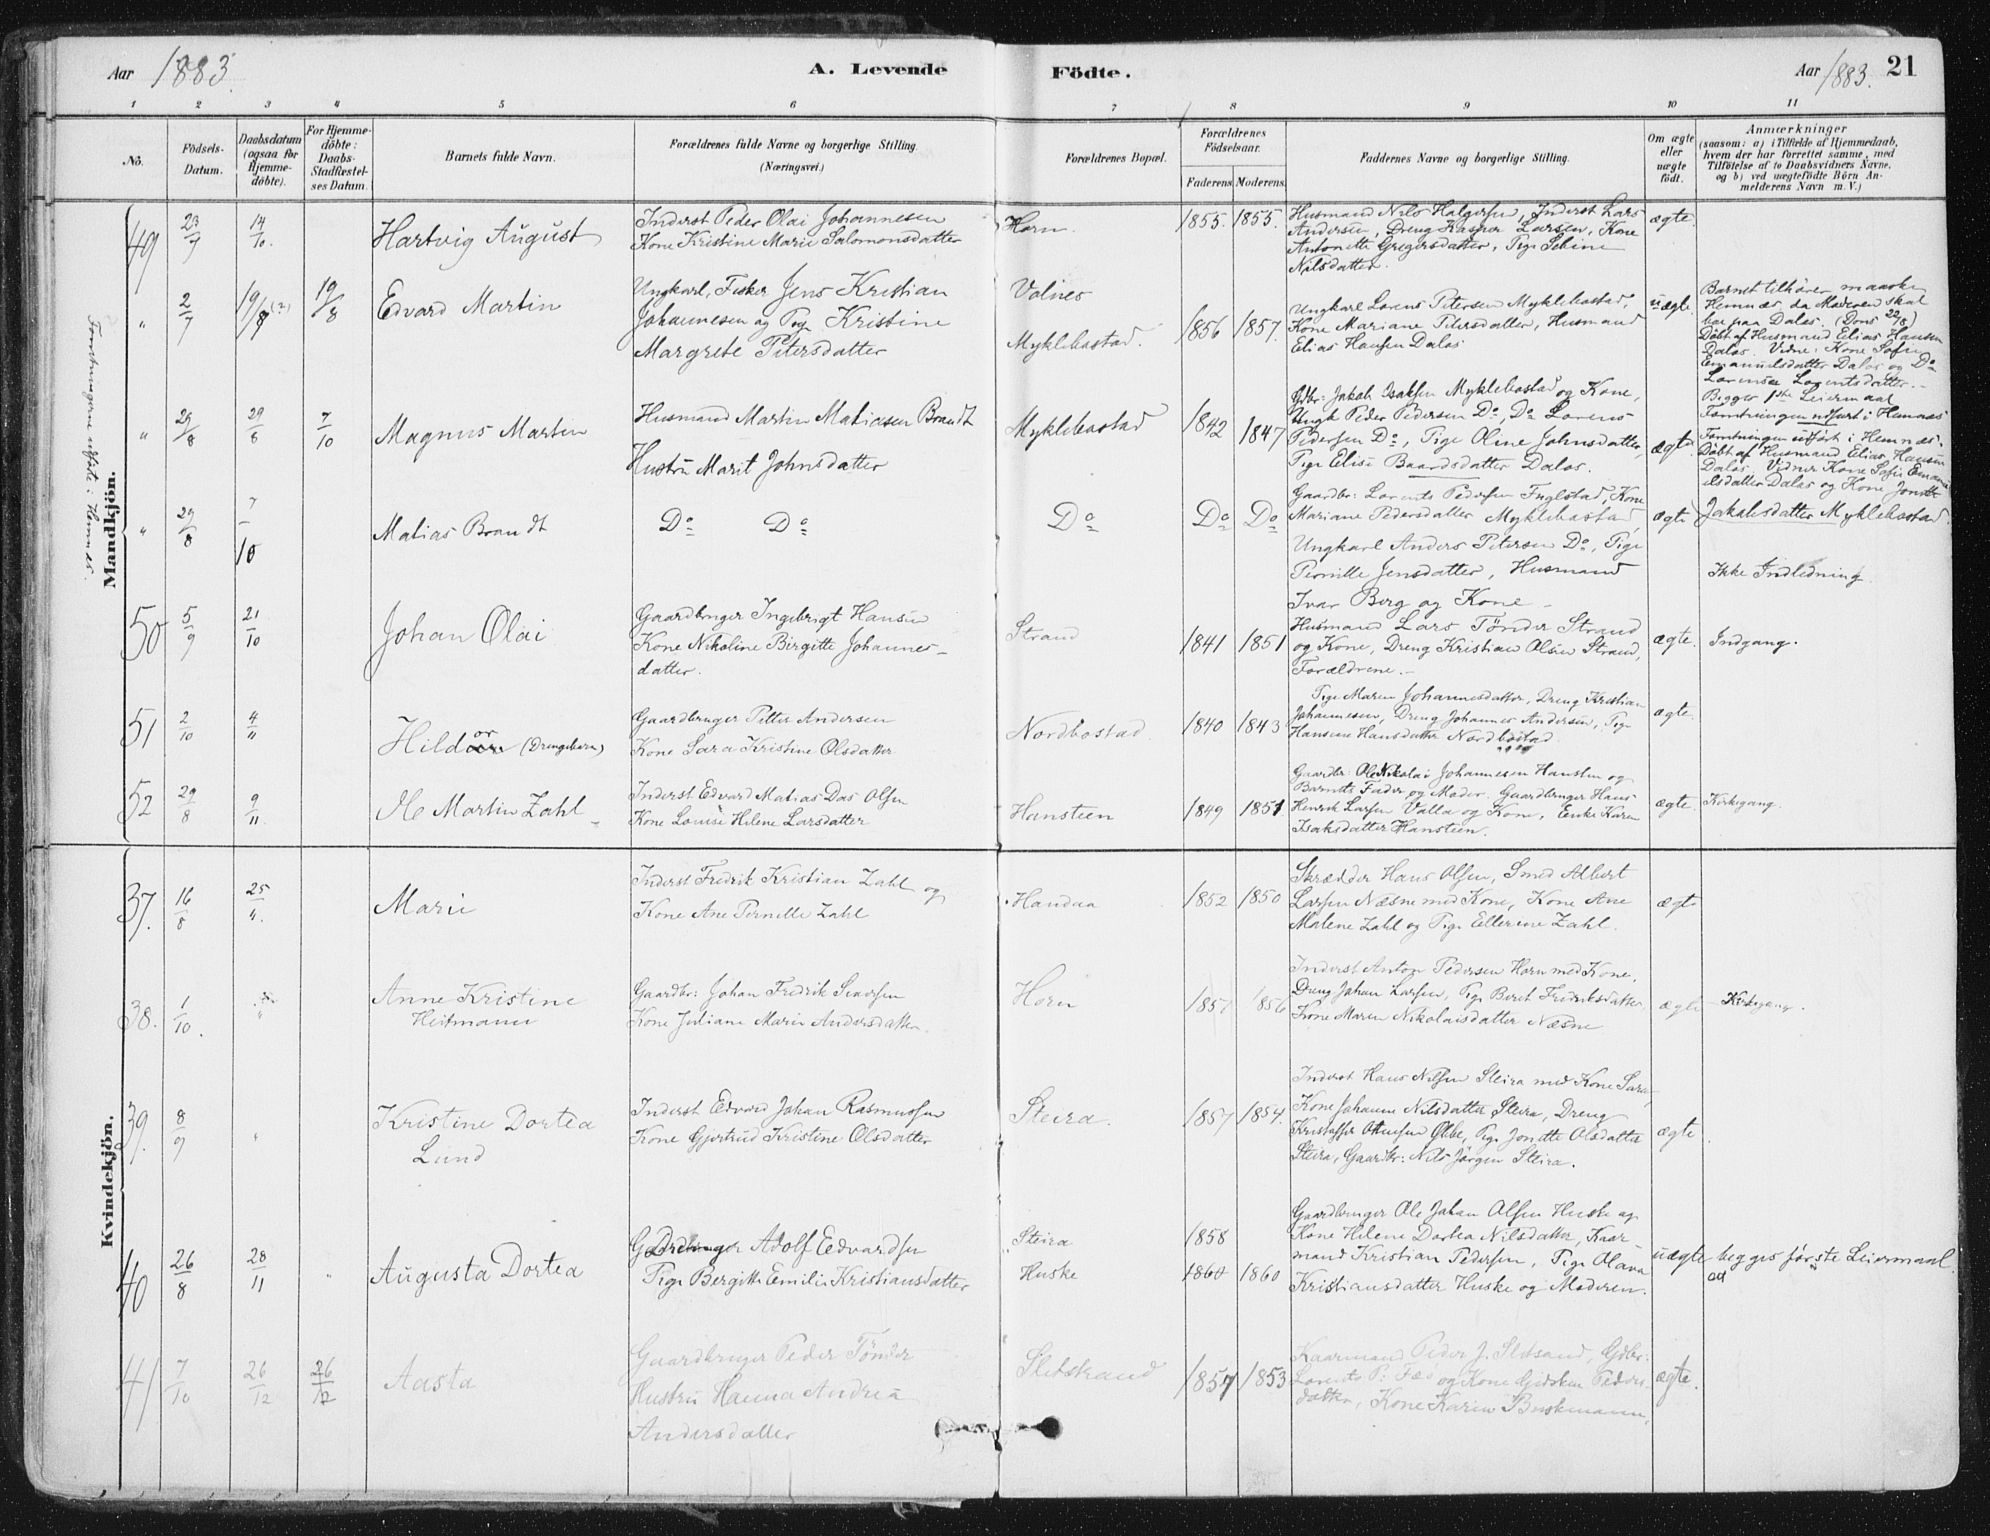 Aar 1883.
A. Levende Födte.
Aar 1883. 21
1 2 3 4 5 6 7 8 9 10 11
No.
Födsels-Datum.
Daabsdatum (ogsaa for Hjemme-döbte).
For Hjemme-döbte: Daabs-Stadfæstel-ses Datum.
Barnets fulde Navn.
Forældrenes fulde Navne og borgerlige Stilling.
(Næringsvei.)
Forældrenes Bopæl.
Forældrenes Födselsaar.
Faderens. Moderens.
Faddernes Navne og borgerlige Stilling.
Om ægte eller uægte födt.
Anmærkninger
(saasom: a) i Tilfælde af Hjemmedaab,
hvem der har forrettet samme, med
Tilföielse af to Daabsvidners Navne,
og b) ved uægtefödte Börn An-
melderens Navn m. V.)
Mandkjön.
49 23/7 14/10 Hartvig August
Inderst Peder Olai Johannesen
Kone Kristine Marie Salomonsdatter
Horn. 1855. 1855.
Husmand Nils Holgersen, Inderst Lars
Andersen, Dreng Kasper Larsen, Kone
Antonette Gregersdatter, Pige Sebine
Nilsdatter.
ægte.
" 2/7 19/8 (?) 19/8 Edvard Martin
Ungkarl, Fisker Jens Kristian
Johannesen og Pige Kristine
Margrete Petersdatter
Volnes
Myklebostad. 1856 1857.
Ungkarl Lorens Petersen Myklebostad,
Kone Mariane Petersdatter, Husmand
Elias Hansen Dalos
uægte.
Barnet tilhører maaske
Hemnæs, da Moderen skal
bo paa Dalos. (Dons 22/8)
Döbt af Husmand Elias Hansen
Dalos. Vidne: Kone Sofie
Emanuelsdatter Dalos og Do
Lorense Lorentsdatter.-
Begges 1ste Leiermaal
" 29/8 29/8 7/10 Magnus Martin
Husmand Martin Matiasen Brandt
Hustru Marit Johnsdatter
Myklebostad 1842 1847
Gdbr: Jakob Isaksen Myklebostad og Kone,
Ungk Peder Pedersen Do, Do Lorens
Pedersen Do, Pige Oline Johnsdatter,
Pige Elise Baardsdatter Dalos.
ægte.
Tömtningen udfört i Hemnæs
Tömtningen udfört i Hemnæs.
Döbt af Husmand Elias Hansen
Dalos. Vidner Kone Sofie Emanu
elsdatter Dalos og Kone Jonette
Jakobsdatter Myklebostad.
" 29/8 7/10 Matias Brandt
Do Do
Do Do Do
Gaardbr: Lorents Pedersen Fuglstad, Kone
Mariane Pedersdatter Myklebostad,
Ungkarl Anders Petersen Do, Pige
Pernille Jensdatter, Husmand
Ivar Berg og Kone -
ægte
Ikke Indledning.
50 5/9 21/10 Johan Olai
Gaardbruger Ingebrigt Hansen
Kone Nikoline Birgitte Johannes-
datter.
Strand 1841 1851
Husmand Lars Tönder Strand
og Kone, Dreng Kristian Olsen Strand,
Forældrene.-
ægte. Indgang.
51 2/10 4/11 Hildor (Drengebarn)
Gaardbruger Petter Andersen
Kone Sara Kristine Olsdatter
Nordbostad. 1840 1843
Pige Maren Johannesdatter, Dreng Kristian
Johannesen, Dreng Johannes Andersen, Pige
Hansine Hansdatter Nordbostad
ægte.
52 29/8 9/11. Ole Martin Zahl
Inderst Edvard Matias Das Olsen
Kone Louise Helene Larsdatter
Hansteen 1849 1851
Gaardbr: Ole Nikolai Johannesen Hansten og
Barnets Fader og Moder. Gaardbruger Hans
Henrik Larsen Valla og Kone, Enke Karen
Isaksdatter Hansteen.
ægte. Kirkegang.
Kvindekjön.
37. 16/8 25/". Marie
Inderst Fredrik Kristian Zahl og
Kone Ane Pernille Zahl
Handaa 1852 1850
Skrædder Hans Olsen, Smed Albert
Larsen Næsne med Kone, Kone Ane
Malene Zahl og Pige Ellerine Zahl.
ægte
38. 1/10. " Anne Kristine
Heitmann
Gaardbr: Johan Fredrik Simonsen
Kone Juliane Marie Andersdatter.
Horn 1857 1856
Inderst Anton Pedersen Horn med Kone,
Dreng Johan Larsen, Pige Beret Fredriksdatter,
Kone Maren Nikolaisdatter Næsne
ægte Kirkegang.
39. 8/9 " Kristine Dortea
Lund
Inderst Edvard Johan Rasmussen
Kone Gjertrud Kristine Olsdatter
Steira. 1857 1854.
Inderst Hans Nilsen Steira med Kone Sara,
Kone Johanne Nilsdatter Steira, Dreng
Kristoffer Ottensen Ølbe, Pige Jonette Olsdatter
Steira, Gaardbr: Nils Jörgen Steira.
ægte
40 26/8 28/11 " Augusta Dortea
Gaardbruger Adolf Edvardsen
Pige Bergitte Emilie Kristiansdatter
Steira 1858
Huske 1860 1860
Gaardbruger Ole Johan Olsen Huske og
Kone Helene Dortea Nilsdatter, Kaar
mand Kristian Pedersen, Pige Olava
Kristiansdatter Huske og Moderen.
uægte begges förste Leiermaal.
41 7/10 26/12 26/12 Aasta
Gaardbruger Peder Tönder
Hustru Hanna Andrea
Andersdatter
Sletstrand 1857 1853
Kaarmand Peder J. Sletsand, Gdbr:
Lorents P. Fæ og Kone Gidsken Peders-
datter, Kone Karen Buskmann,
ægte.